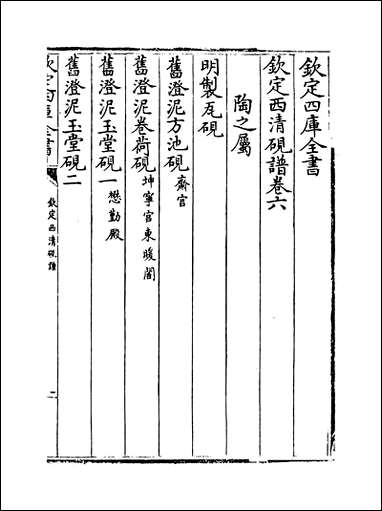 欽定四庫全書
欽定西清硯譜卷六
陶之屬
明製瓦硯
舊澄泥方池硯齋宫
舊澄泥卷荷硯坤寧宫東暖閣
舊澄泥玉堂硯一懋勤殿
舊澄泥玉堂硯二
欽定四庫全書
欽定西清硯譜